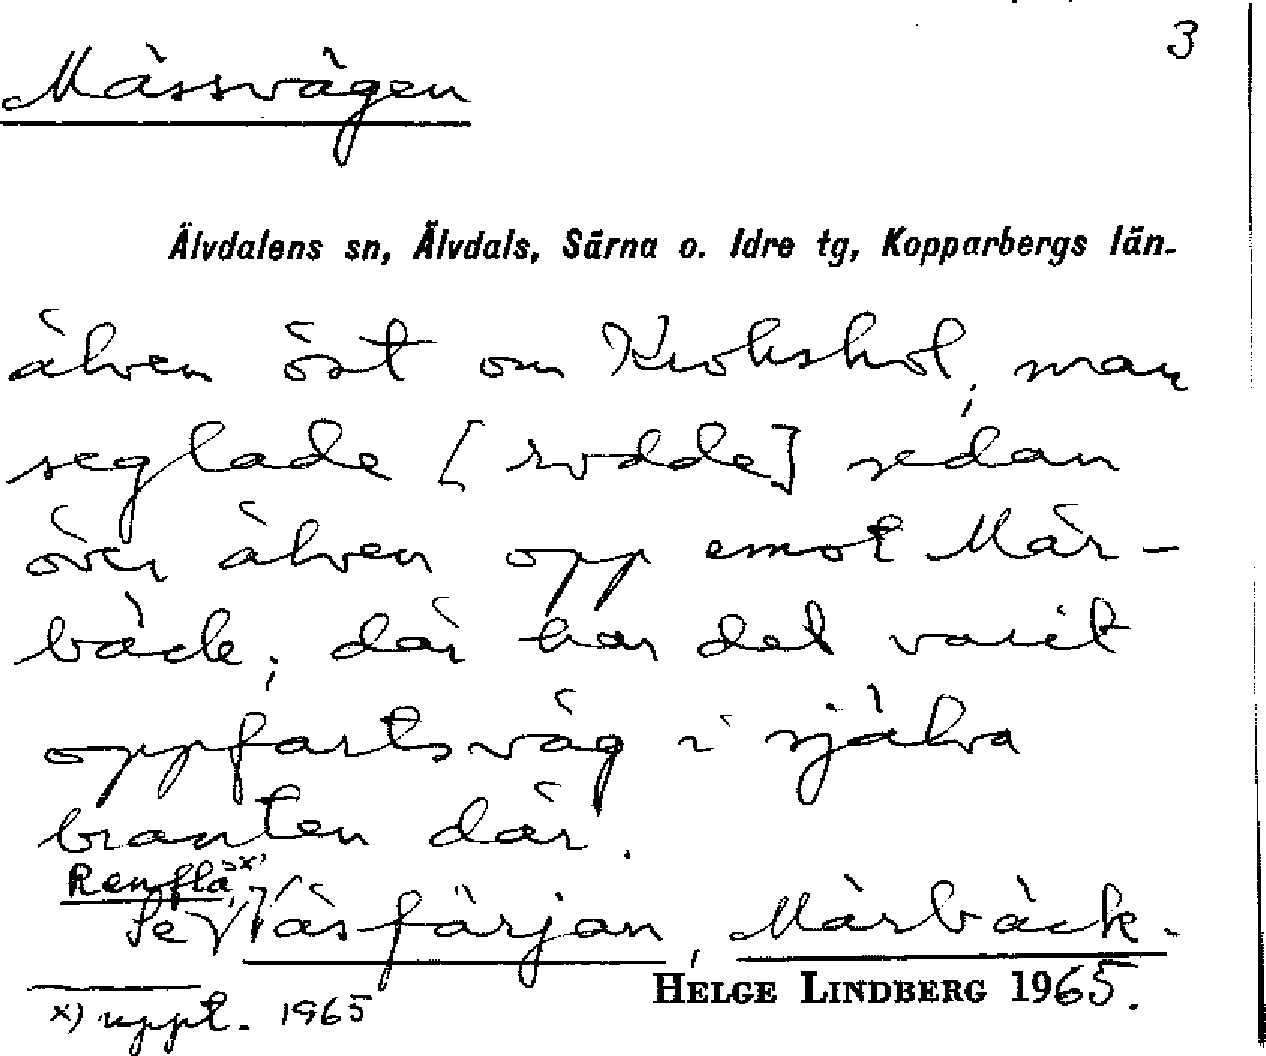 3
Mässvägen
Älvdalens sn, Älvdals, Särna o. Idre tg, Kopparbergs län.
älven öst om Krokshol, man
seglade [rodde] sedan
över älven opp emot Mär-
bäck; där har det varit
oppfartsväg i själva
branten där.
Renflå x)
Se Näsfärjan, Märbäck.
HELGE LINDBERG 1965.
x) uppt. 1965